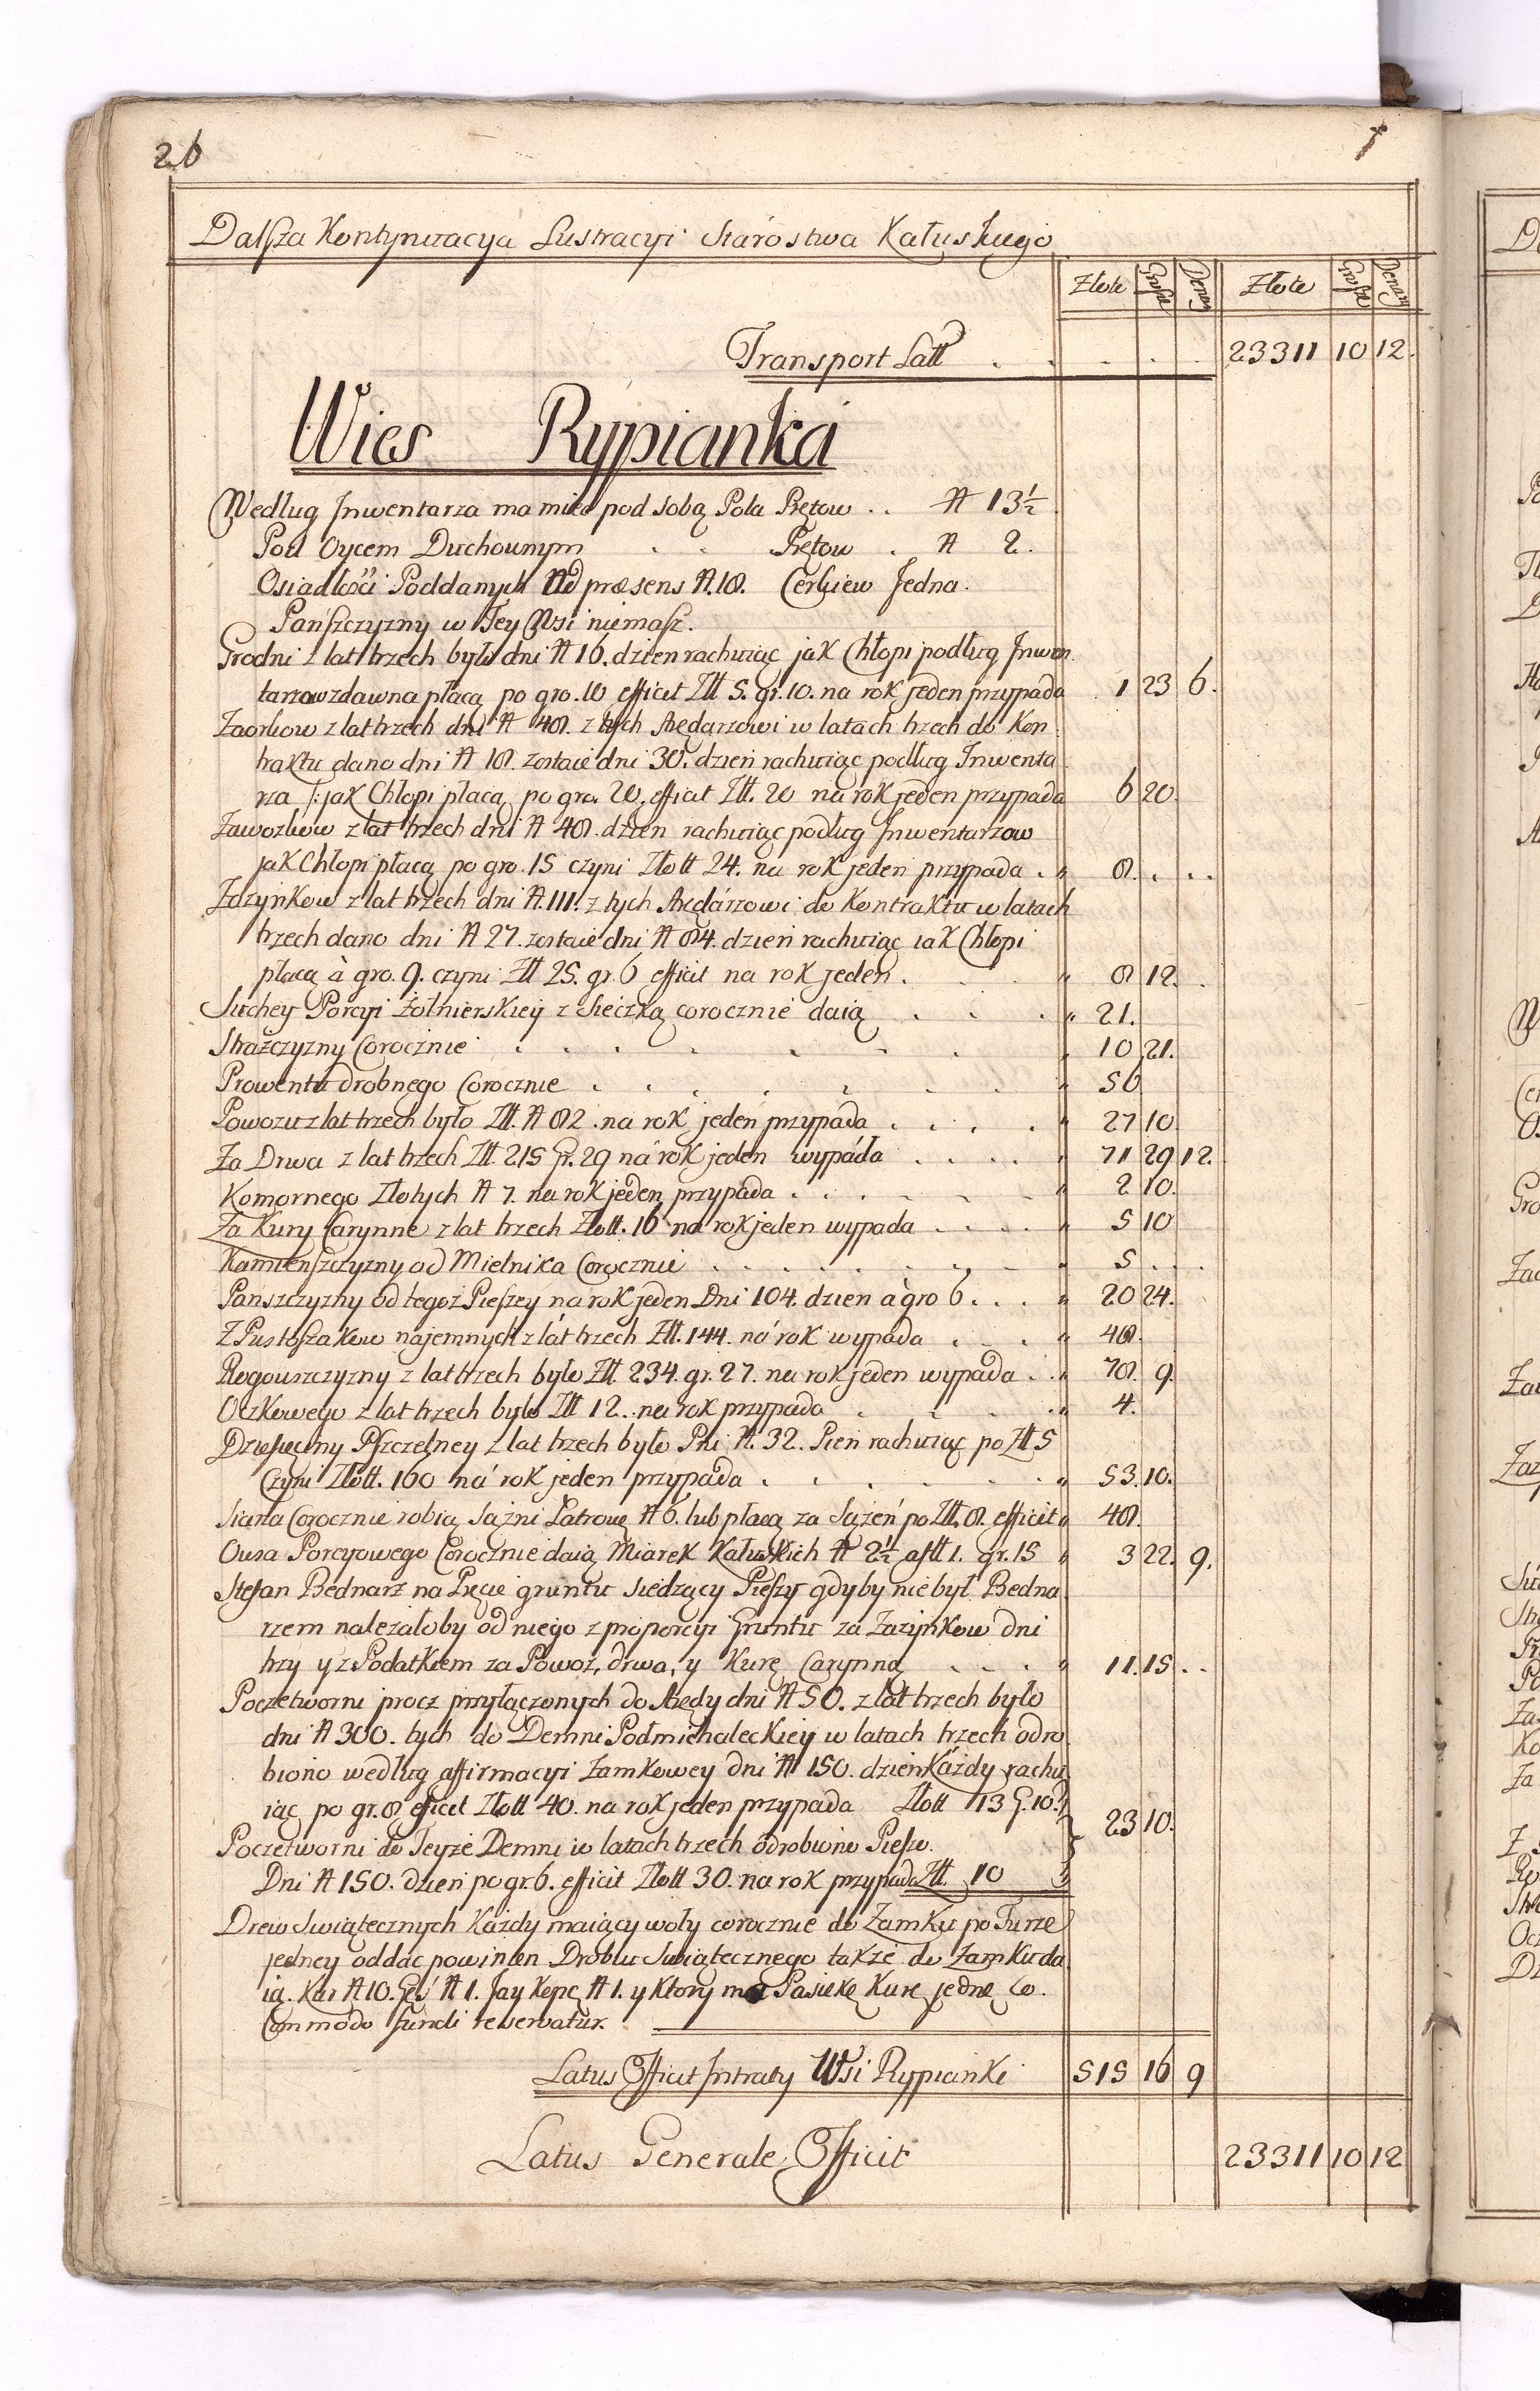 26
Dalsza Kontynuacya Lustracyi Starostwa Kałuskiego
Złote Grosze Denary Złote Grosze Denary
Transport Latt . . . . . 23311 10 12.
Wies Rypianka
Według Inwentarza ma mieć pod sobą Pola Prętow . . N 13½
Pod Oycem Duchownym . . Prętow . N 2.
Osiadłości Poddanych Ad præsens N. 18. Cerkiew Jedna.
Pańszczyzny w Tey Wsi niemasz.
Grodni z lat trzech było dni N 16. dzien rachuiąc jak Chłopi podług Inwen
tarzow zdawna płacą po gro. 10 efficit Złł 5. gr. 10. na rok jeden przypada . 1 23 6.
Zaorkow z lat trzech dni N 48. z tych Arędarzowi w latach trzech do Kon
traktu dano dni N 18. zostaie dni 30. dzień rachuiąc podług Inwenta
rza /: jak Chłopi płacą po gro. 20. efficit Złł. 20 na rok jeden przypada 6 20.
Zawozkow z lat trzech dni N 48. dzien rachuiąc podług Inwentarzow
jak Chłopi płacą po gro. 15 czyni Złott 24. na rok jeden przypada . " 8. . . .
Zdzynkow z lat trzech dni N. 111. z tych Arędárzowi do Kontraktu w latach
trzech dano dni N 27. zostaie dni N 84. dzień rachuiąc iak Chłopi
płacą à gro. 9. czyni Złł 25. gr. 6 efficit na rok jeden . . . " 8 12. .
Suchey Porcyi Żołnierskiey z Sieczką corocznie daią . . . " 21.
Strażczyzny Corocznie . . . . . . . " 10 21.
Prowentu drobnego Corocznie . . . . . . " 56
Powozu z lat trzech było Złł. N 82 . na rok jeden przypada . . . . " 27 10.
Za Drwa z lat trzech Złł. 215 Gr. 29 ná rok jeden wypáda . . . . " 71 29 12.
Komornego Złotych N 7. na rok jeden przypada . . . . . . " 2 10.
Za Kury Carynne z lat trzech Złott. 16 na rok jeden wypada . . . . " 5 10
Kamienszczyzny od Mielnika Corocznie . . . . . . . " 5 . . .
Panszczyzny od tegoż Pieszey na rok jeden Dni 104. dzien à gro 6 . . . " 20 24.
Z Pustoszakow najemnych z lát trzech Złł. 144. ná rok wypada . . . " 48.
Rogowszczyzny z lat trzech było Złł 234. gr. 27. na rok jeden wypada . . " 78. 9.
Oczkowego z lat trzech było Złł 12. na rok przypada . . . . " 4.
Dziesięciny Pszczelney z lat trzech było Pni N. 32. Pień rachuiąc po Złł 5
Czyni Złott. 160 ná rok jeden przypada . . . . . . " 53. 10.
Siana Corocznie robią Sążni N 6. lub płacą za Sążeń po Złł. 8. efficit " 48.
Owsa Porcyowego Corocznie daią Miarek Kałuskich N 2½ a fłł 1. gr. 15 " 3 22. 9.
Stefan Bednarz na Pięci gruntu siedzący Pieszy gdyby nie był Bedna
rzem należałoby od niego z proporcyi Gruntu za Zazynkow dni
trzy y z Podatkiem za Powoz, drwa, y Kurę Carynną . . . " 11. 15. . .
Poczetworni procz przyłączonych do Arędy dni N 50. z lat trzech było
dni N 300. tych do Demni Podmichaleckiey w latach trzech odro
biono według affirmacyi Zamkowey dni N 150. dzień Każdy rachu
iąc po gr. 8 efficit Złott 40. na rok jeden przypada Złott 13 G. 10. } 23 10.
Poczetworni do Teyże Demni w latach trzech odrobiono Pieszo.
Dni N 150. dzień po gr. 6. efficit Złott 30. na rok przypada Złł. 10
Drew Swiątecznych Każdy maiący woły corocznie do Zamku po Furze
jedney oddać powinien Drobiu Swiątecznego także do Zamku da
ią. Kur N 10. Gęś N 1. Jay Kopę N 1. y Ktory ma Pasiekę Kurę jedną Co.
Commodo fundi reservatur.
Latus Efficit Intraty Wsi Rypianki 515 16 9
Latus Generale Efficit 23311 10 12